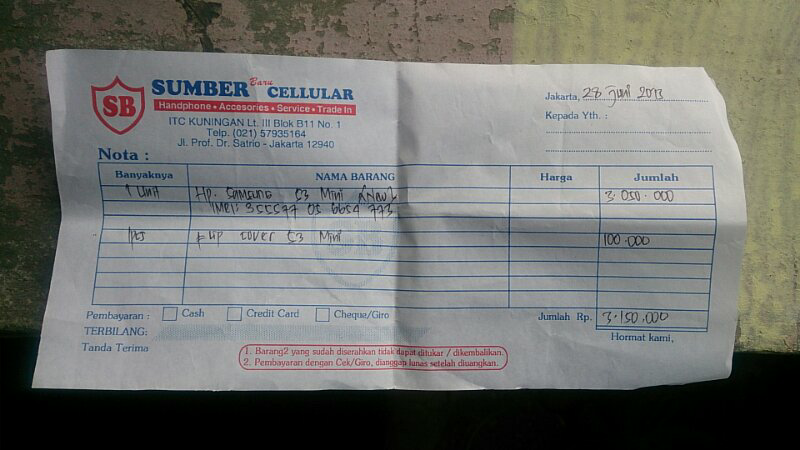 SB
SUMBER Baru CELLULAR
Handphone • Accesories • Service • Trade In
ITC KUNINGAN Lt. III Blok B11 No. 1
Telp. (021) 57935164
Jl. Prof. Dr. Satrio - Jakarta 12940
Jakarta, 28 Juni 2013
Kepada Yth. :
Nota :
Banyaknya NAMA BARANG Harga Jumlah
1 Unit HP. SAMSUNG S3 Mini (New) 3.050.000
IMEI: 355577 05 6654 773
1 pcs Flip cover S3 Mini 100.000
Pembayaran : Cash Credit Card Cheque/Giro Jumlah Rp. 3.150.000
TERBILANG: Hormat kami,
Tanda Terima
1. Barang2 yang sudah diserahkan tidak dapat ditukar / dikembalikan.
2. Pembayaran dengan Cek/Giro, dianggap lunas setelah diuangkan.